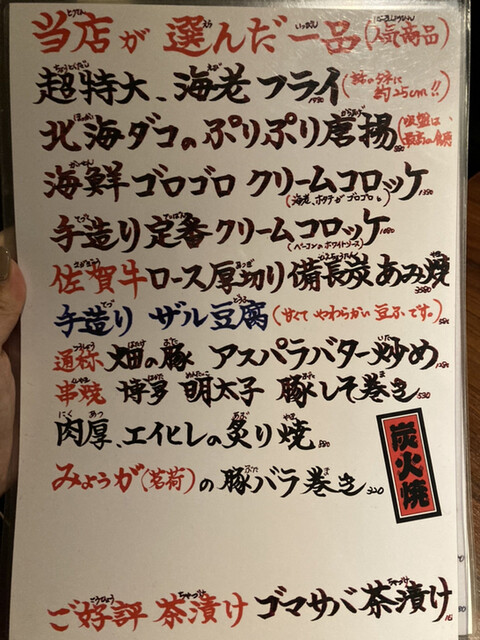 当店が選んだ一品(人気商品)
超特大、海老フライ(約25cm!!)
北海ダコのぷりぷり唐揚
海鮮ゴロゴロクリームコロッケ
(海老、ホタテがゴロゴロ)
手造り定番クリームコロッケ
(ベーコンのホワイトソース)
佐賀牛ロース厚切り備長炭あみ焼
手造りザル豆腐(甘くてやわらかい豆ふです。)
通称畑の豚アスパラバター炒め
串焼 博多明太子豚しそ巻き 530
肉厚、エイヒレの炙り焼
みょうが(茗荷)の豚バラ巻き 320
炭火焼
ご好評茶漬けゴマサバ茶漬け